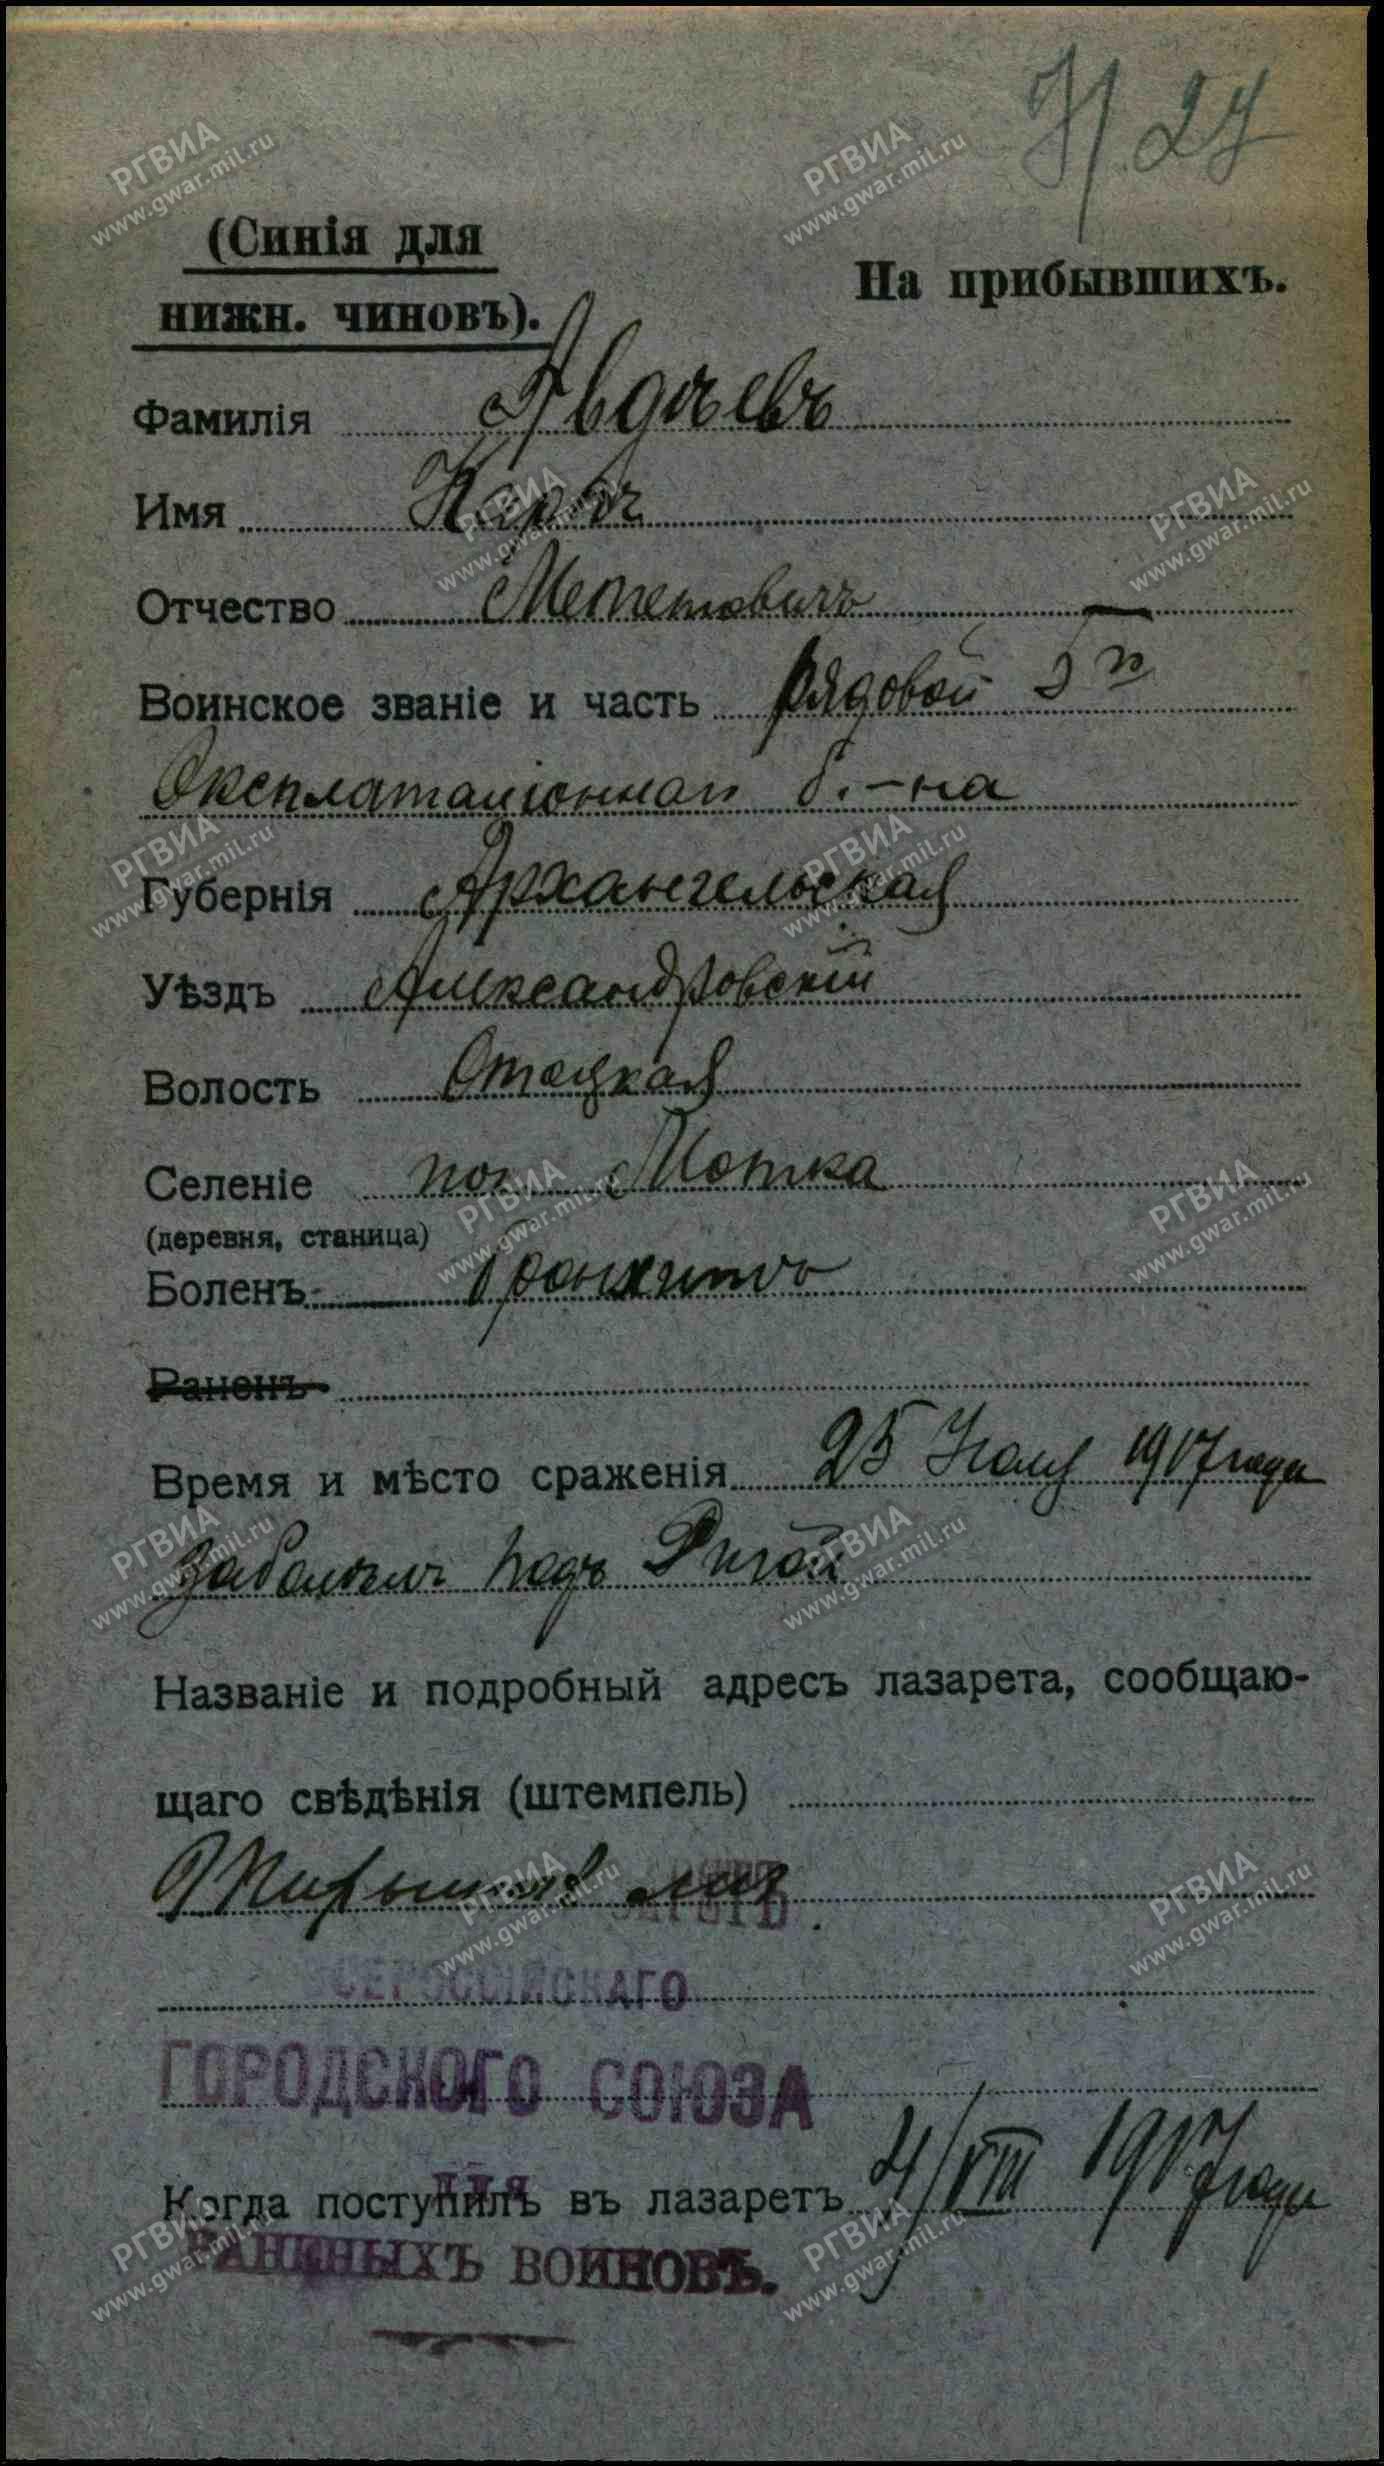 Н 27
(Синія для
нижн. чиновъ).
На прибывшихъ.
Фамилія Авдѣевъ
Имя Карлъ
Отчество
Воинское званіе и часть рядовой 5 п
Эксплатаціонной б.-на
Губернія Архангельская
Уѣздъ Александровскій
Волость Отецкая
Селеніе пог Мотка
(деревня, станица)
Боленъ бронхитъ
Раненъ
Время и мѣсто сраженія 25 Іюля 1917 года
Заболѣлъ подъ Ригой
Названіе и подробный адресъ лазарета, сообщаю-
щаго свѣдѣнія (штемпель)
ВСЕРОССІЙСКАГО
ГОРОДСКОГО СОЮЗА
для
Когда поступилъ въ лазаретъ 4/VIII 1917 года
РАНЕНЫХЪ ВОИНОВЪ.
РГВИА
www.gwar.mil.ru